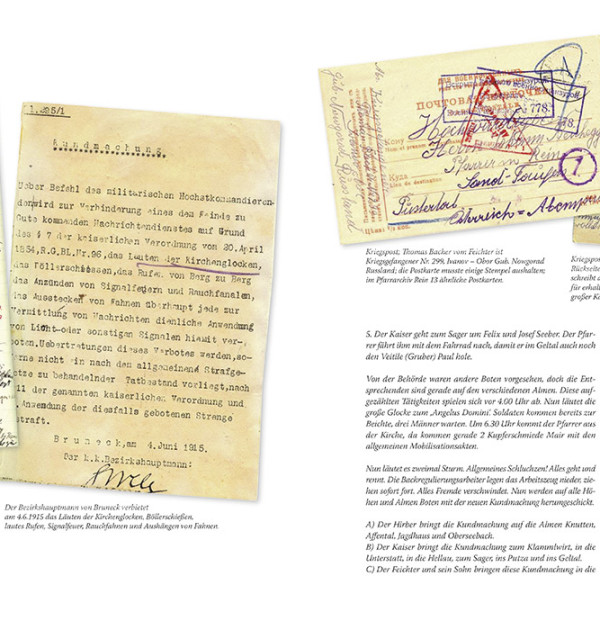 1.225/1
Kundmachung.
Ueber Befehl des militärischen Höchstkommandieren-
den wird zur Verhinderung eines dem Feinde zu
Gute kommenden Nachrichtendienstes auf Grund
des § 7 der kaiserlichen Verordnung vom 20. April
1854, R.G.Bl.Nr.96, das Lauten der Kirchenglocken,
das Böllerschiessen, das Rufen von Berg zu Berg
das Anzünden von Signalfeuern und Rauchfanalen,
das Ausstecken von Fahnen überhaupt jede zur
Vermittlung von Nachrichten dienliche Anwendung
von Licht-oder sonstigen Signalen hiemit ver-
boten. Uebertretungen dieses Verbotes werden, so-
ferne nicht ein nach den allgemeinen Strafge-
zu behandelnder Tatbestand vorliegt, nach
der genannten kaiserlichen Verordnung und
Anwendung der diesfalls gebotenen Strenge
straft.
Bruneck, am 4. Juni 1915.
Der k.k. Bezirkshauptmann:
Der Bezirkshauptmann von Bruneck verbietet
am 4.6.1915 das Läuten der Kirchenglocken, Böllerschießen,
lautes Rufen, Signalfeuer, Rauchfahnen und Aushängen von Fahnen.
778.
778.
Кому
Herrn
Pfarrer in Rein
Куда
Sand-Taufers
Pustertal
Österreich
1
Kriegspost; Thomas Bacher vom Feichter ist
Kriegsgefangener Nr. 299, Ivanov – Obor Gub. Nowgorad
Russland; die Postkarte musste einige Stempel aushalten;
im Pfarrarchiv Rein 13 ähnliche Postkarten.
Kriegspos
Rückseite
schreibt a
für erhal
großer Ka
5. Der Kaiser geht zum Sager um Felix und Josef Seeber. Der Pfar-
rer fährt ihm mit dem Fahrrad nach, damit er im Geltal auch noch
den Veitile (Gruber) Paul hole.
Von der Behörde waren andere Boten vorgesehen, doch die Ent-
sprechenden sind gerade auf den verschiedenen Almen. Diese auf-
gezählten Tätigkeiten spielen sich vor 4.00 Uhr ab. Nun läutet die
große Glocke zum ‚Angelus Domini'. Soldaten kommen bereits zur
Beichte, drei Männer warten. Um 6.30 Uhr kommt der Pfarrer aus
der Kirche, da kommen gerade 2 Kupferschmiede Mair mit den
allgemeinen Mobilisationsakten.
Nun läutet es zweimal Sturm. Allgemeines Schluchzen! Alles geht und
rennt. Die Backregulierungsarbeiter legen das Arbeitszeug nieder, zie-
hen sofort fort. Alles Fremde verschwindet. Nun werden auf alle Hö-
hen und Almen Boten mit der neuen Kundmachung herumgeschickt.
A) Der Hirber bringt die Kundmachung auf die Almen Knutten,
Affental, Jagdhaus und Oberseebach.
B) Der Kaiser bringt die Kundmachung zum Klammlwirt, in die
Unterstatt, in die Hellau, zum Sager, ins Putza und ins Geltal.
C) Der Feichter und sein Sohn bringen diese Kundmachung in die